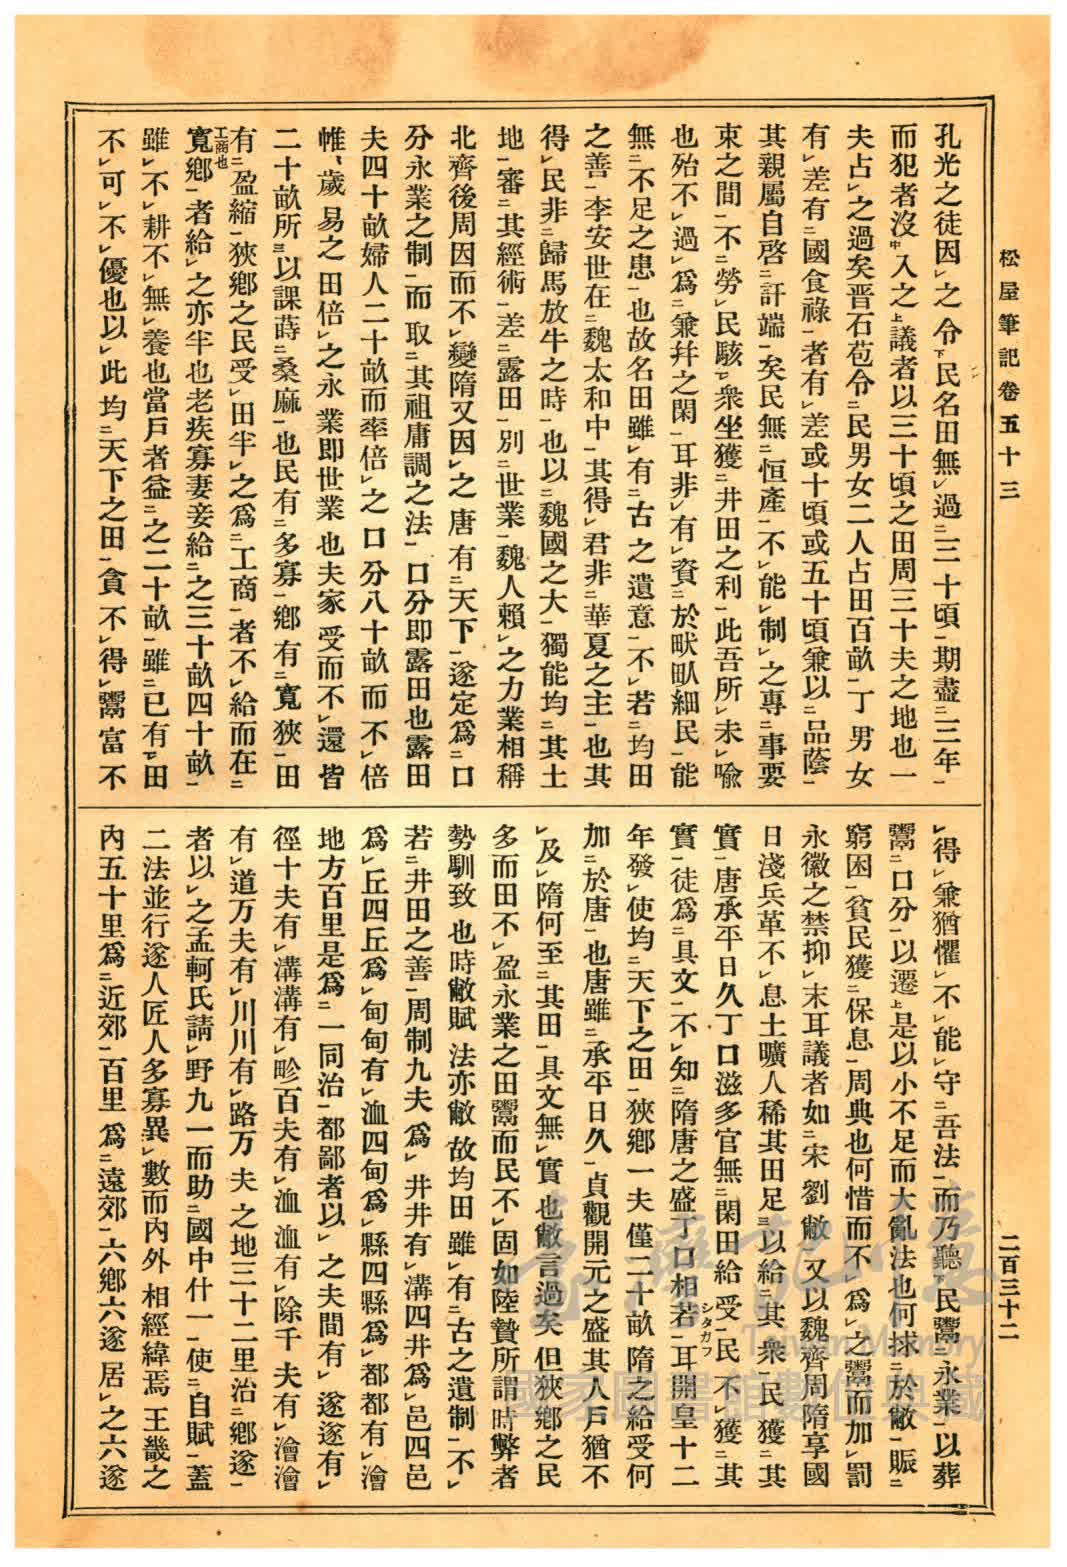 松屋筆記卷五十三
二百三十二
孔光之徒因㆑之令㆘民名田無㆑過㆓三十頃㆒期盡㆓三年㆒
而犯者沒㆗入之㆖議者以三十頃之田周三十夫之地也一
夫占㆑之過矣晋石苞令㆓民男女二人占田百畝㆒丁男女
有㆑差有㆓國食祿㆒者有㆑差或十頃或五十頃兼以㆓品蔭㆒
其親屬自啓㆓訐端㆒矣民無㆓恒產㆒不㆑能㆑制㆑之專㆓事要
束之間㆒不㆓勞㆑民駭㆑衆坐獲㆓井田之利㆒此吾所㆑未㆑喩
也殆不㆑過㆑爲㆓兼幷之閑㆒耳非㆑有㆑資㆓於畎畝細民㆒能
無㆓不足之患㆒也故名田雖㆑有㆓古之遺意㆒不㆑若㆓均田
之善㆒李安世在㆓魏太和中㆒其得㆑君非㆓華夏之主㆒也其
得㆑民非㆓歸馬放牛之時㆒也以㆓魏國之大㆒獨能均㆓其土
地㆒審㆓其經術㆒差㆓露田㆒別㆓世業㆒魏人賴㆑之力業相稱
北齊後周因而不㆑變隋又因㆑之唐有㆓天下㆒遂定爲㆓口
分永業之制㆒而取㆓其祖庸調之法㆒口分卽露田也露田
夫四十畝婦人二十畝而率倍㆑之口分八十畝而不㆑倍
帷、歲易之田倍㆑之永業卽世業也夫家受而不㆑還皆
二十畝所㆔以課蒔㆓桑麻㆒也民有㆓多寡㆒鄉有㆓寬狹㆒田
有㆓盈縮㆒狹鄉之民受㆑田半㆑之爲㆓工商㆒者不㆑給而在㆓
寬鄉㆒工商也者給㆑之亦半也老疾寡妻妾給㆓之三十畝四十畝㆒
雖㆑不㆑耕不㆑無㆑養也當戶者益㆓之二十畝㆒雖㆓已有㆑田
不㆑可㆑不㆑優也以㆑此均㆓天下之田㆒貪不㆑得㆑鬻富不
㆑得㆑兼猶懼㆑不㆑能㆑守㆓吾法㆒而乃聽㆘民鬻㆓永業㆒以葬
鬻㆓口分㆒以遷㆖是以小不足而大亂法也何捄㆓於敝㆒賑㆓
窮困㆒貧民獲㆓保息㆒周典也何惜而不㆑爲㆑之鬻而加㆑罰
永徽之禁抑㆑末耳議者如㆓宋劉敝㆒又以魏齊周隋享國
日淺兵革不㆑息土曠人稀其田足㆔以給㆓其衆㆒民獲㆓其
實㆒唐承平日久丁口滋多官無㆓閑田給受㆒民不㆑獲㆓其
實㆒徒爲㆓具文㆒不㆑知㆓隋唐之盛丁口相若シタガフ㆒耳開皇十二
年發㆑使均㆓天下之田㆒狹鄉一夫僅二十畝隋之給受何
加㆓於唐㆒也唐雖㆓承平日久㆒貞觀開元之盛其人戶猶不
㆑及㆑隋何至㆓其田㆒具文無㆑實也敝言過矣但狹鄉之民
多而田不㆑盈永業之田鬻而民不㆑固如陸贄所謂時弊者
勢馴致也時敝賦法亦敝故均田雖㆑有㆓古之遺制㆒不㆑
若㆓井田之善㆒周制九夫爲㆑井井有㆑溝四井爲㆑邑四邑
爲㆑丘四丘爲㆑甸甸有㆑洫四甸爲㆑縣四縣爲㆑都都有㆑澮
地方百里是爲㆓一同治㆒都鄙者以㆑之夫間有㆑遂遂有㆑
徑十夫有㆑溝溝有㆑畛百夫有㆑洫洫有㆑除千夫有㆑澮澮
有㆑道万夫有㆑川川有㆑路万夫之地三十二里治㆓鄉遂㆒
者以㆑之孟軻氏請㆑野九一而助㆓國中什一㆒使㆓自賦㆒蓋
二法並行遂人匠人多寡異㆑數而內外相經緯焉王畿之
內五十里爲㆓近郊㆒百里爲㆓遠郊㆒六鄉六遂居㆑之六遂
臺灣記憶
Taiwan Memory
國家圖書館數位典藏